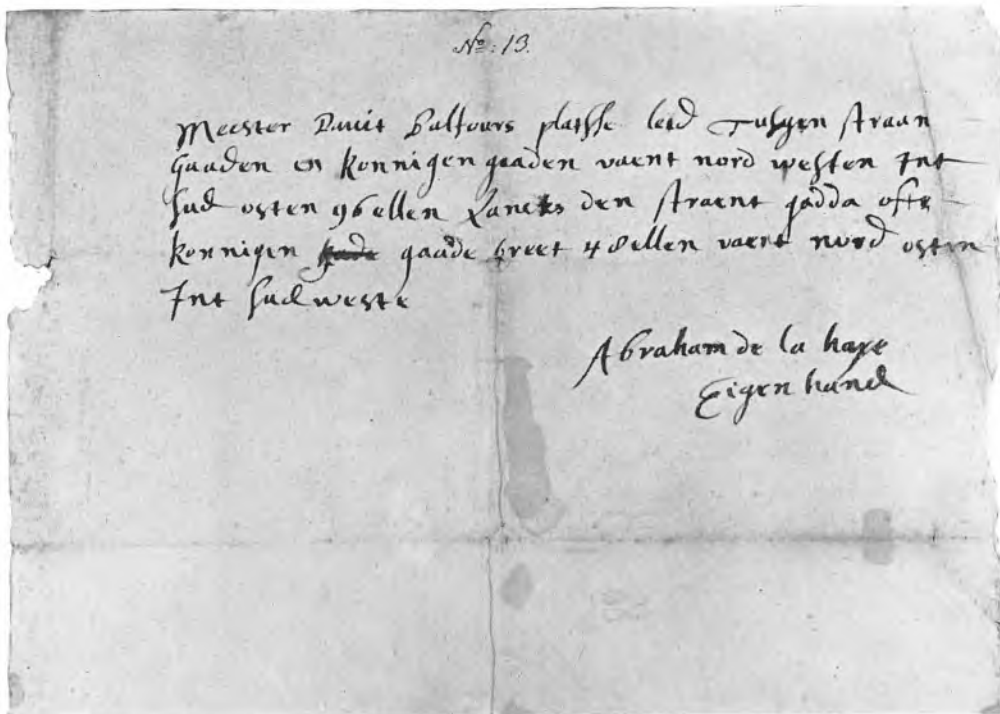 No: 13.
Meester Dauit Balfours platsse leid Tusgen straan
gaaden en konnigen gaaden vaent nord westen Int
sud osten 96 ellen Lancks den straent gadda ofte
konnigen gaade breet 48 ellen vaent nord osten
Int sud weste
Abraham de la haye
Eigen hand